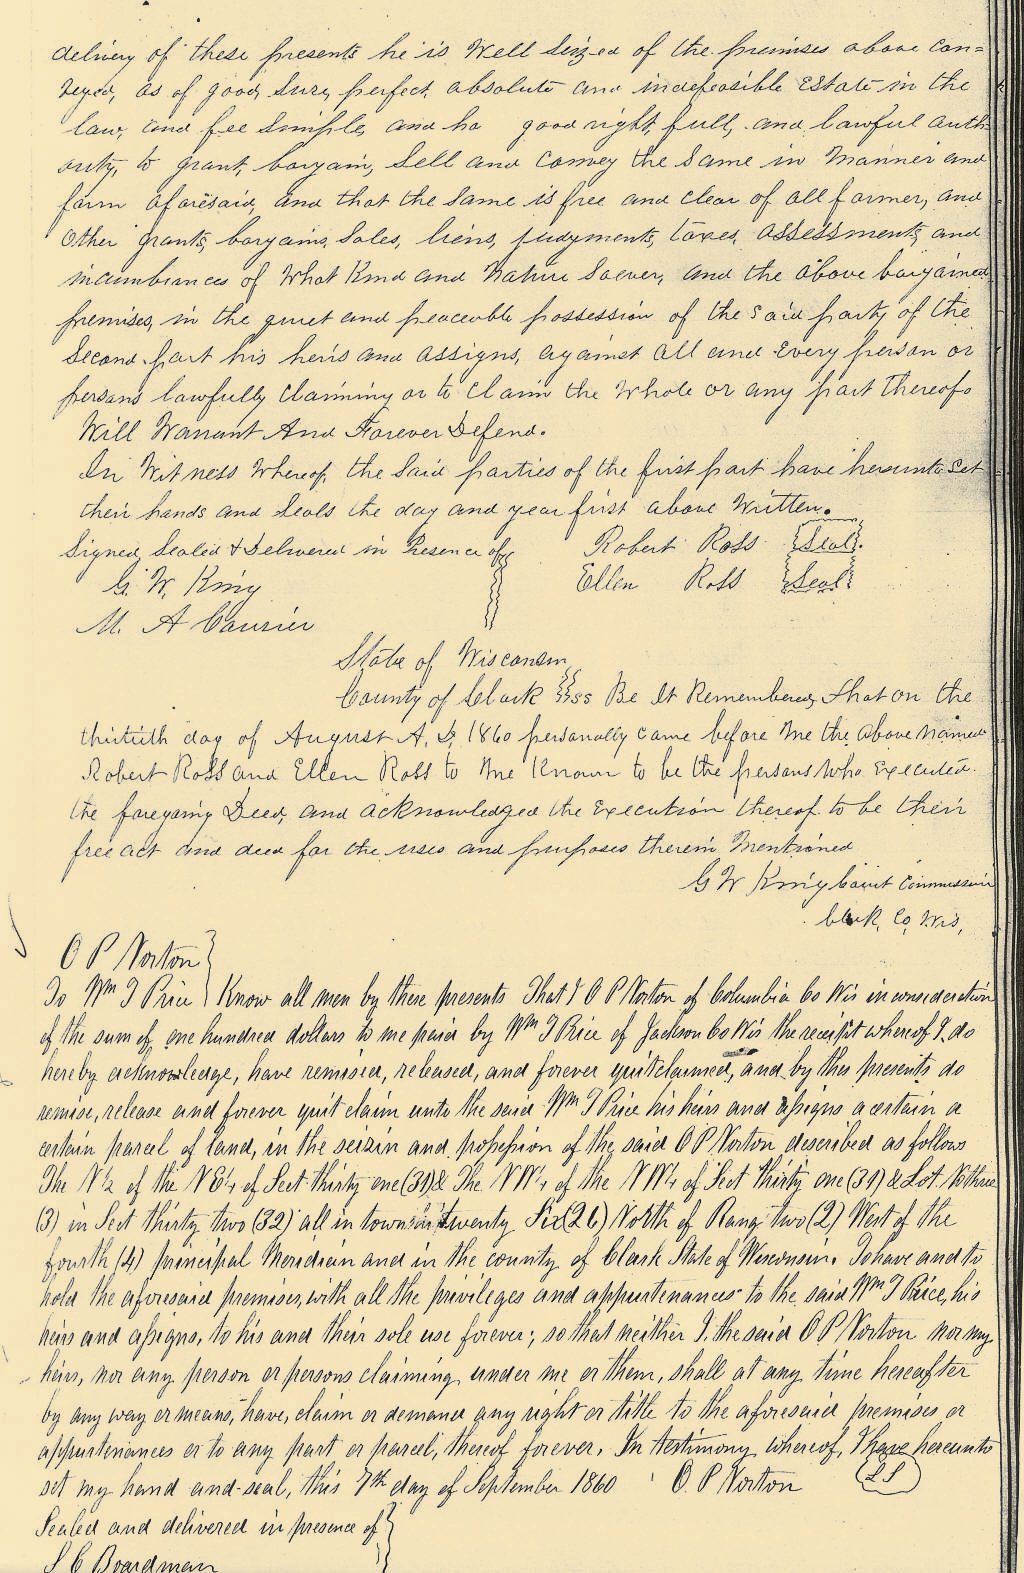 delivery of these presents he is Well Seized of the premises above con=
veyed, as of good, Sure, perfect, absolute and indefeasible Estate in the
law, and fee Simple, and ha good right, full, and lawful auth
ority, to grant, bargain, Sell and Convey the Same in Manner and
form aforesaid, and that the Same is free and clear of all former, and
Other grants, bargains, Sales, liens, judgments, taxes, assessments, and
incumbrances of What Kind and Nature Soever, and the above bargained
premises, in the quiet and peaceable possession of the Said party of the
Second part his heirs and assigns, against all and Every person or
persons lawfully Claiming or to Claim the Whole or any part thereof
Will Warrant And Forever Defend.
In Witness Whereof, the Said parties of the first part have hereunto Set
their hands and Seals the day and year first above Written.
Signed, Sealed & Delivered in Presence of Robert Ross Seal.
G. W. King Ellen Ross Seal
M. A Courier
State of Wisconsin
County of Clark ss Be It Remembered, that on the
thirtieth day of August A, D, 1860 personally came before me the above named
Robert Ross and Ellen Ross to Me Known to be the persons Who Executed
the foregoing Deed, and acknowledged the Execution thereof to be their
free act and deed for the uses and purposes therein Mentioned
G W King Court Commissioner
Clark, Co, Wis,
O P Norton
To Wm T Price Know all men by these presents That I O P Norton of Columbia Co Wis in consideration
of the sum of one hundred dollars to me paid by Wm T Price of Jackson Co Wis the receipt whereof I do
hereby acknowledge, have remised, released, and forever quitclaimed, and by thes presents do
remise, release and forever quit claim unto the said Wm T Price his heirs and assigns a certain a
certain parcel of land, in the seizin and possession of the said O P Norton described as follows
The N½ of the NE¼ of Sect thirty one (31) & The NW¼ of the NW¼ of Sect Thirty one (31) & Lot No three
(3) in Sect thirty two (32) all in town twenty Six (26) North of Rang two (2) West of the
fourth (4) principal Meridian and in the county of Clark State of Wisconsin. To have and to
hold the aforesaid premises, with all the privileges and appurtenances to the said Wm T Price, his
heirs and assigns, to his and their sole use forever; so that neither I, the said O P Norton nor my
heirs, nor any person or persons claiming under me or them, shall at any time hereafter
by any way or means, have, claim or demand any right or title to the aforesaid premises or
appurtenances or to any part or parcel, thereof forever. In testimony whereof, I have hereunto
set my hand and seal, this 7th day of September 1860 O. P Norton LS
Sealed and delivered in presence of
S C Boardman